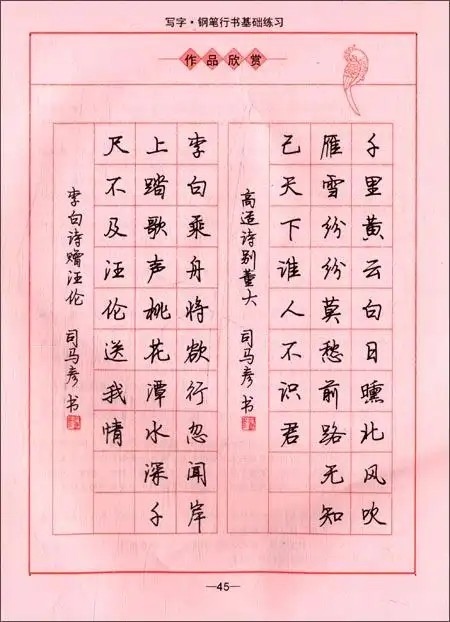 写字·钢笔行书基础练习
作品欣赏
千里黄云白日曛北风吹
雁雪纷纷莫愁前路无知
己天下谁人不识君
高适诗别董大 司马彦书
李白乘舟将欲行忽闻岸
上踏歌声桃花潭水深千
尺不及汪伦送我情
李白诗赠汪伦 司马彦书
—45—